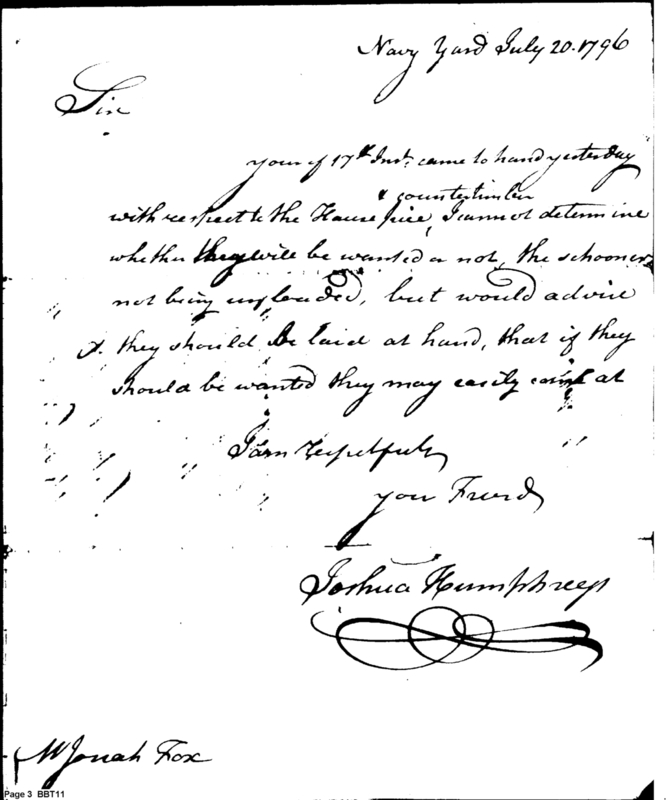 Navy Yard July 20. 1796
Sir
your of 17th Inst. came to hand yesterday
& countertimber
with respect to the Hause pice, I cannot determine
whether they will be wanted or not, the schooner
not being unloaded, but would advice
they should be laid at hand, that if they
should be wanted they may easily at
I am Respectfuly
your Friend
Joshua Humphreys
Mr Josiah Fox
Page 3 BBT11